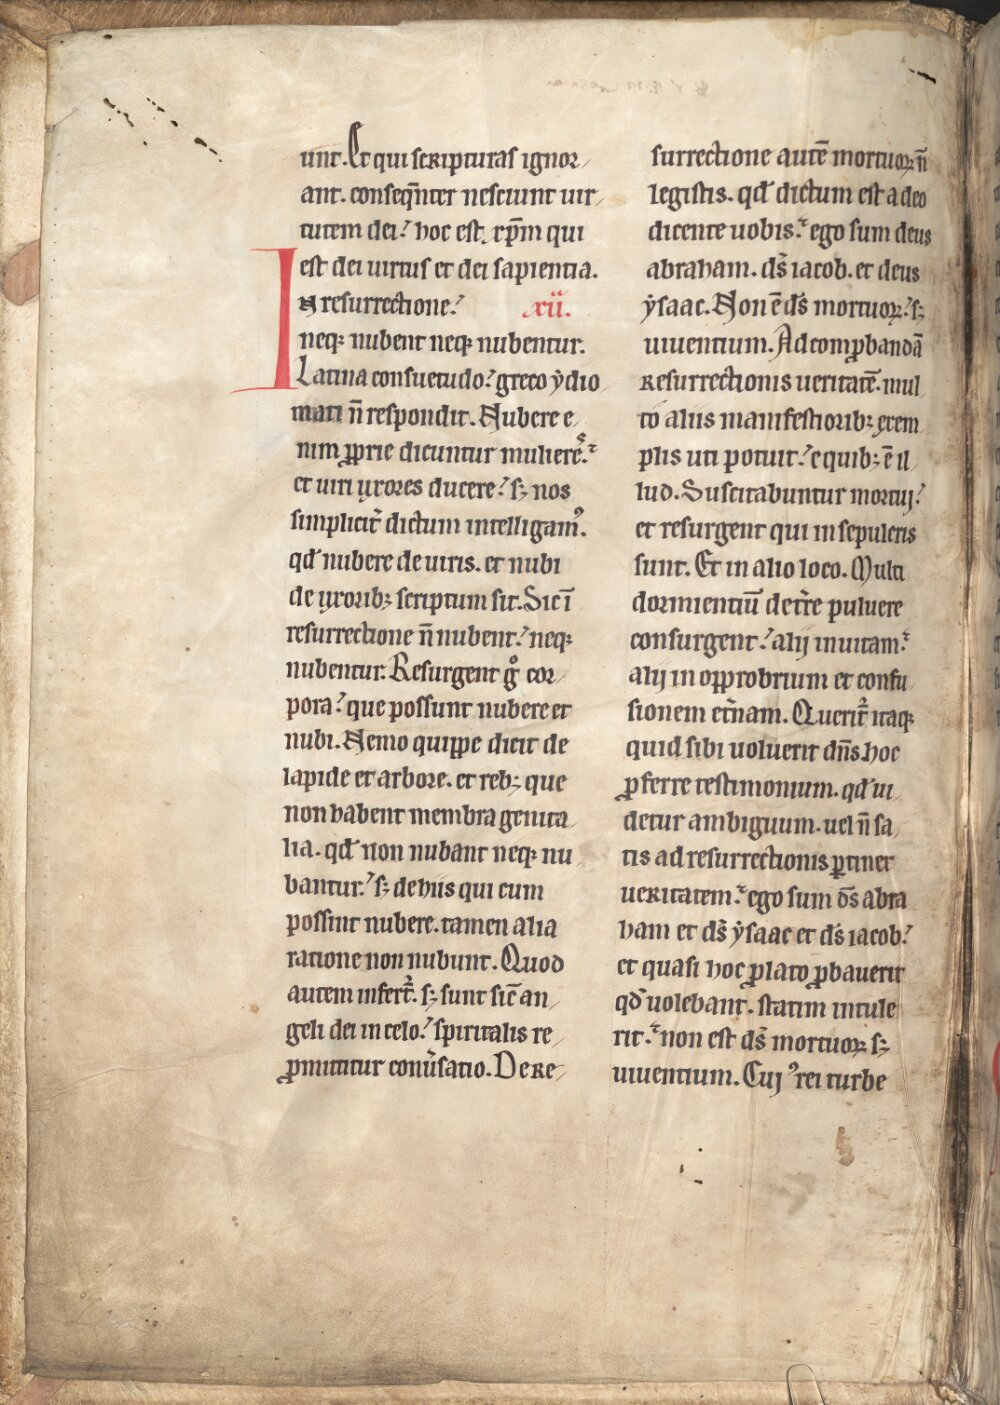 unt. Et qui scripturas ignor
ant. conseq̄nter nesciunt uir
tutem dei? hoc est. xp̄m qui
est dei uirtus et dei sapientia.
In resurrectione? xii.
neq; nubent neq; nubentur.
Latina consuetudo? greco ydio
mati n̄ respondit. Nubere e
nim ꝓprie dicuntur muliereˢ.
et uiri uxores ducere? s; nos
simplicit̄ dictum intelligamꝰ.
qd̄ nubere de uiris. et nubi
de uxorib; scriptum sit. Sic ī
resurrectione n̄ nubent? neq;
nubentur. Resurgent gͦ cor
pora? que possunt nubere et
nubi. Nemo quippe dicit de
lapide et arbore. et reb; que
non habent membra genita
lia. qd̄ non nubant neq; nu
bantur? s; de hiis qui cum
possint nubere. tamen alia
ratione non nubunt. Quod
autem infert̄. s; sunt sic̄ an
geli dei in celo? spiritalis re
ꝓmittitur conũsatio. De re
surrectione autē mortuoꝝ n̄
legistis. qd̄ dictum est a deo
dicente uobis? ego sum deus
abraham. ds̄ iacob. et deus
ẏsaac. Non ē ds̄ mortuoꝝ? s;
uiuentium. Ad comꝓbandā
resurrectionis ueritatē. mul
to aliis manifestiorib; exem
plis uti potuit? e quib; ē il
lud. Suscitabuntur mortui?
et resurgent qui in sepulcris
sunt. Et in alio loco. Multi
dormientiū de tr̄e puluere
consurgent? alij in uitam?
alij in opprobrium et confu
sionem et̄nam. Querit̄ itaq;
quid sibi uoluerit dn̄s hoc
ꝓferre testimonium. qd̄ ui
detur ambiguum. uel n̄ sa
tis ad resurrectionis ꝑtinet
ueritatem? ego sum ds̄ abra
ham et ds̄ ẏsaac et ds̄ iacob?
et quasi hoc ꝓlato ꝓbauerit
qd̄ uolebant. statim intule
rit? non est ds̄ mortuoꝝ s;
uiuentium. Cuj ꝰrei turbe